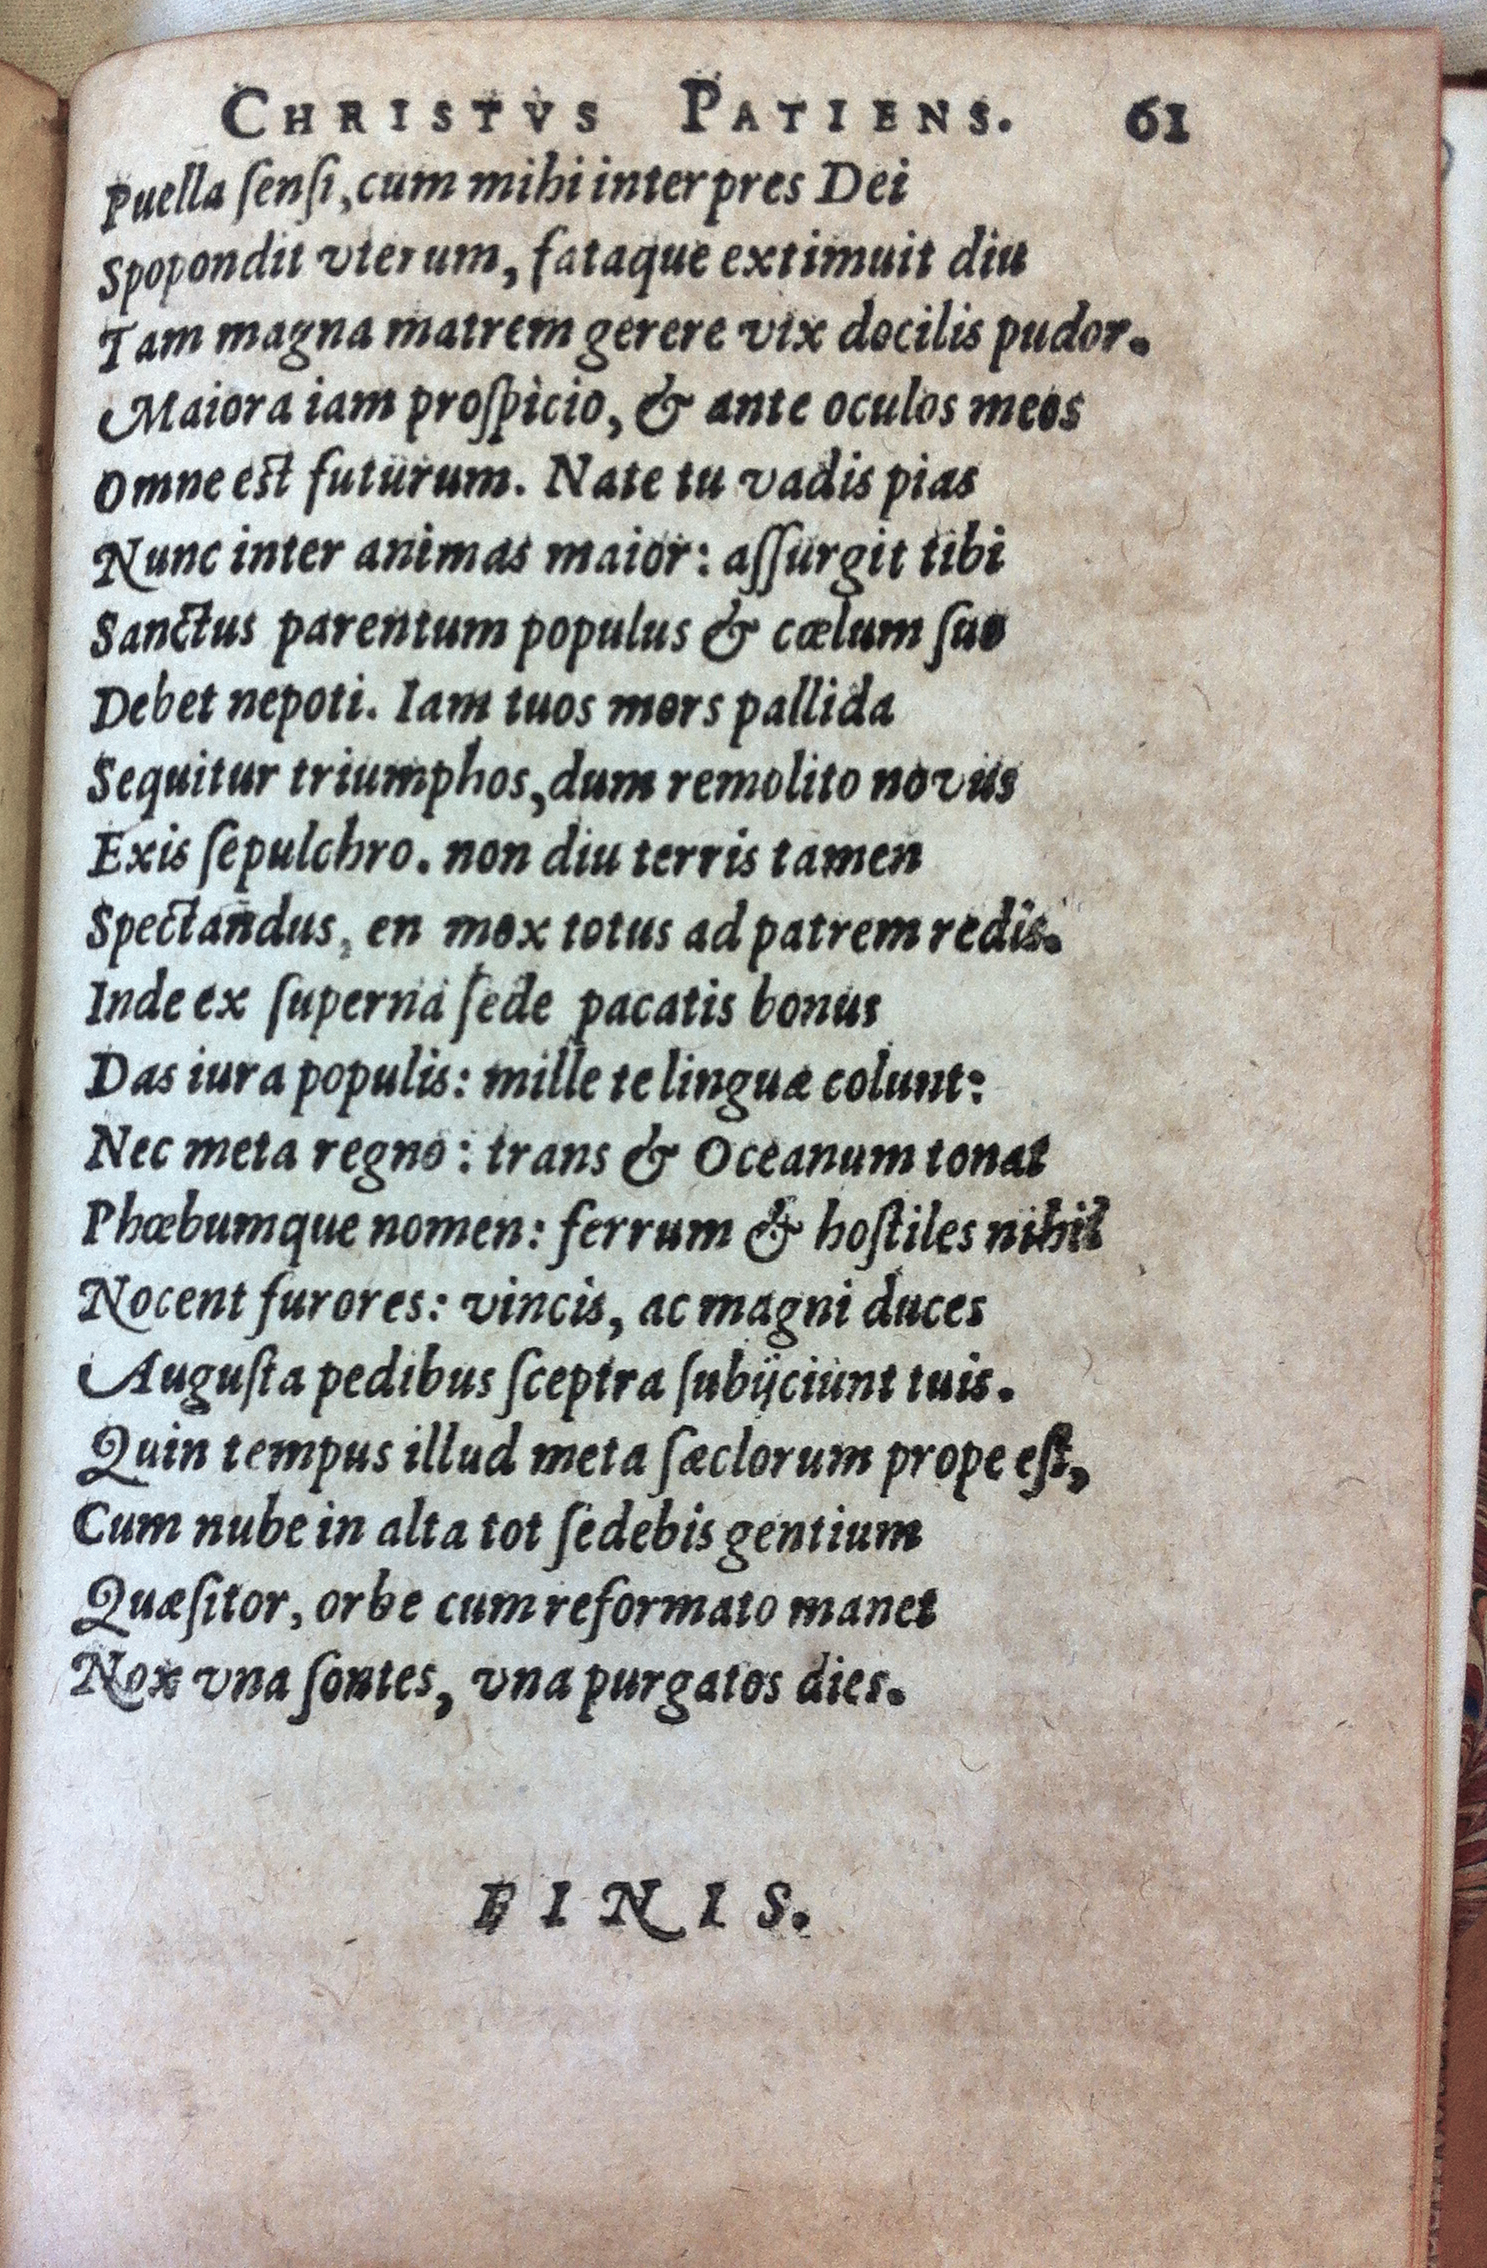 CHRISTVS PATIENS. 61
Puella ſenſi, cum mihi interpres Dei
Spopondit vterum, fataque extimuit diu
Tam magna matrem gerere vix docilis pudor.
Maiora iam proſpicio, & ante oculos meos
Omne est futurum. Nate tu vadis pias
Nunc inter animas maior: aſſurgit tibi
Sanctus parentum populus & cælum ſuo
Debet nepoti. Iam tuos mors pallida
Sequitur triumphos, dum remolito novus
Exis ſepulchro. non diu terris tamen
Spectandus, en mox totus ad patrem redis.
Inde ex ſuperna ſede pacatis bonus
Das iura populis: mille te linguæ colunt:
Nec meta regno: trans & Oceanum tonat
Phœbumque nomen: ferrum & hoſtiles nihil
Nocent furores: vincis, ac magni duces
Auguſta pedibus ſceptra ſubijciunt tuis.
Quin tempus illud meta ſæclorum prope eſt,
Cum nube in alta tot ſedebis gentium
Quæſitor, orbe cum reformato manet
Nox vna ſontes, vna purgatos dies.
FINIS.